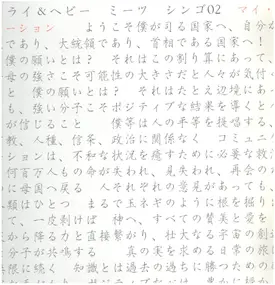 ライ＆ヘビー　ミーツ　シンゴ02　マイ
ーション　ようこそ僕が司る国家へ、自分が
であり、大統領であり、首相である国家へ！
僕の願いとは？　それはこの割り算にあって、
母の強さこそ可能性の大きさだと人々が気付
と信じること　僕等は人の平等を提唱する、
教、人種、信条、政治に関係なく　コミュニ
ションは、不和な状況を癒すために必要な救
何百万人もの命が失われ、見失われ、再会の
に母国へ戻る　人それぞれの意見があっても、
類はひとつ　まるで玉ネギのように根を掘り
て、一皮剥けば　神へ、すべての賛美と愛を
から降る力と直接繋がり、壮大なる宇宙の創
分子が共鳴する　真の実を求める日常の旅
無限に続く　知識とは過去の過ちに勝つための